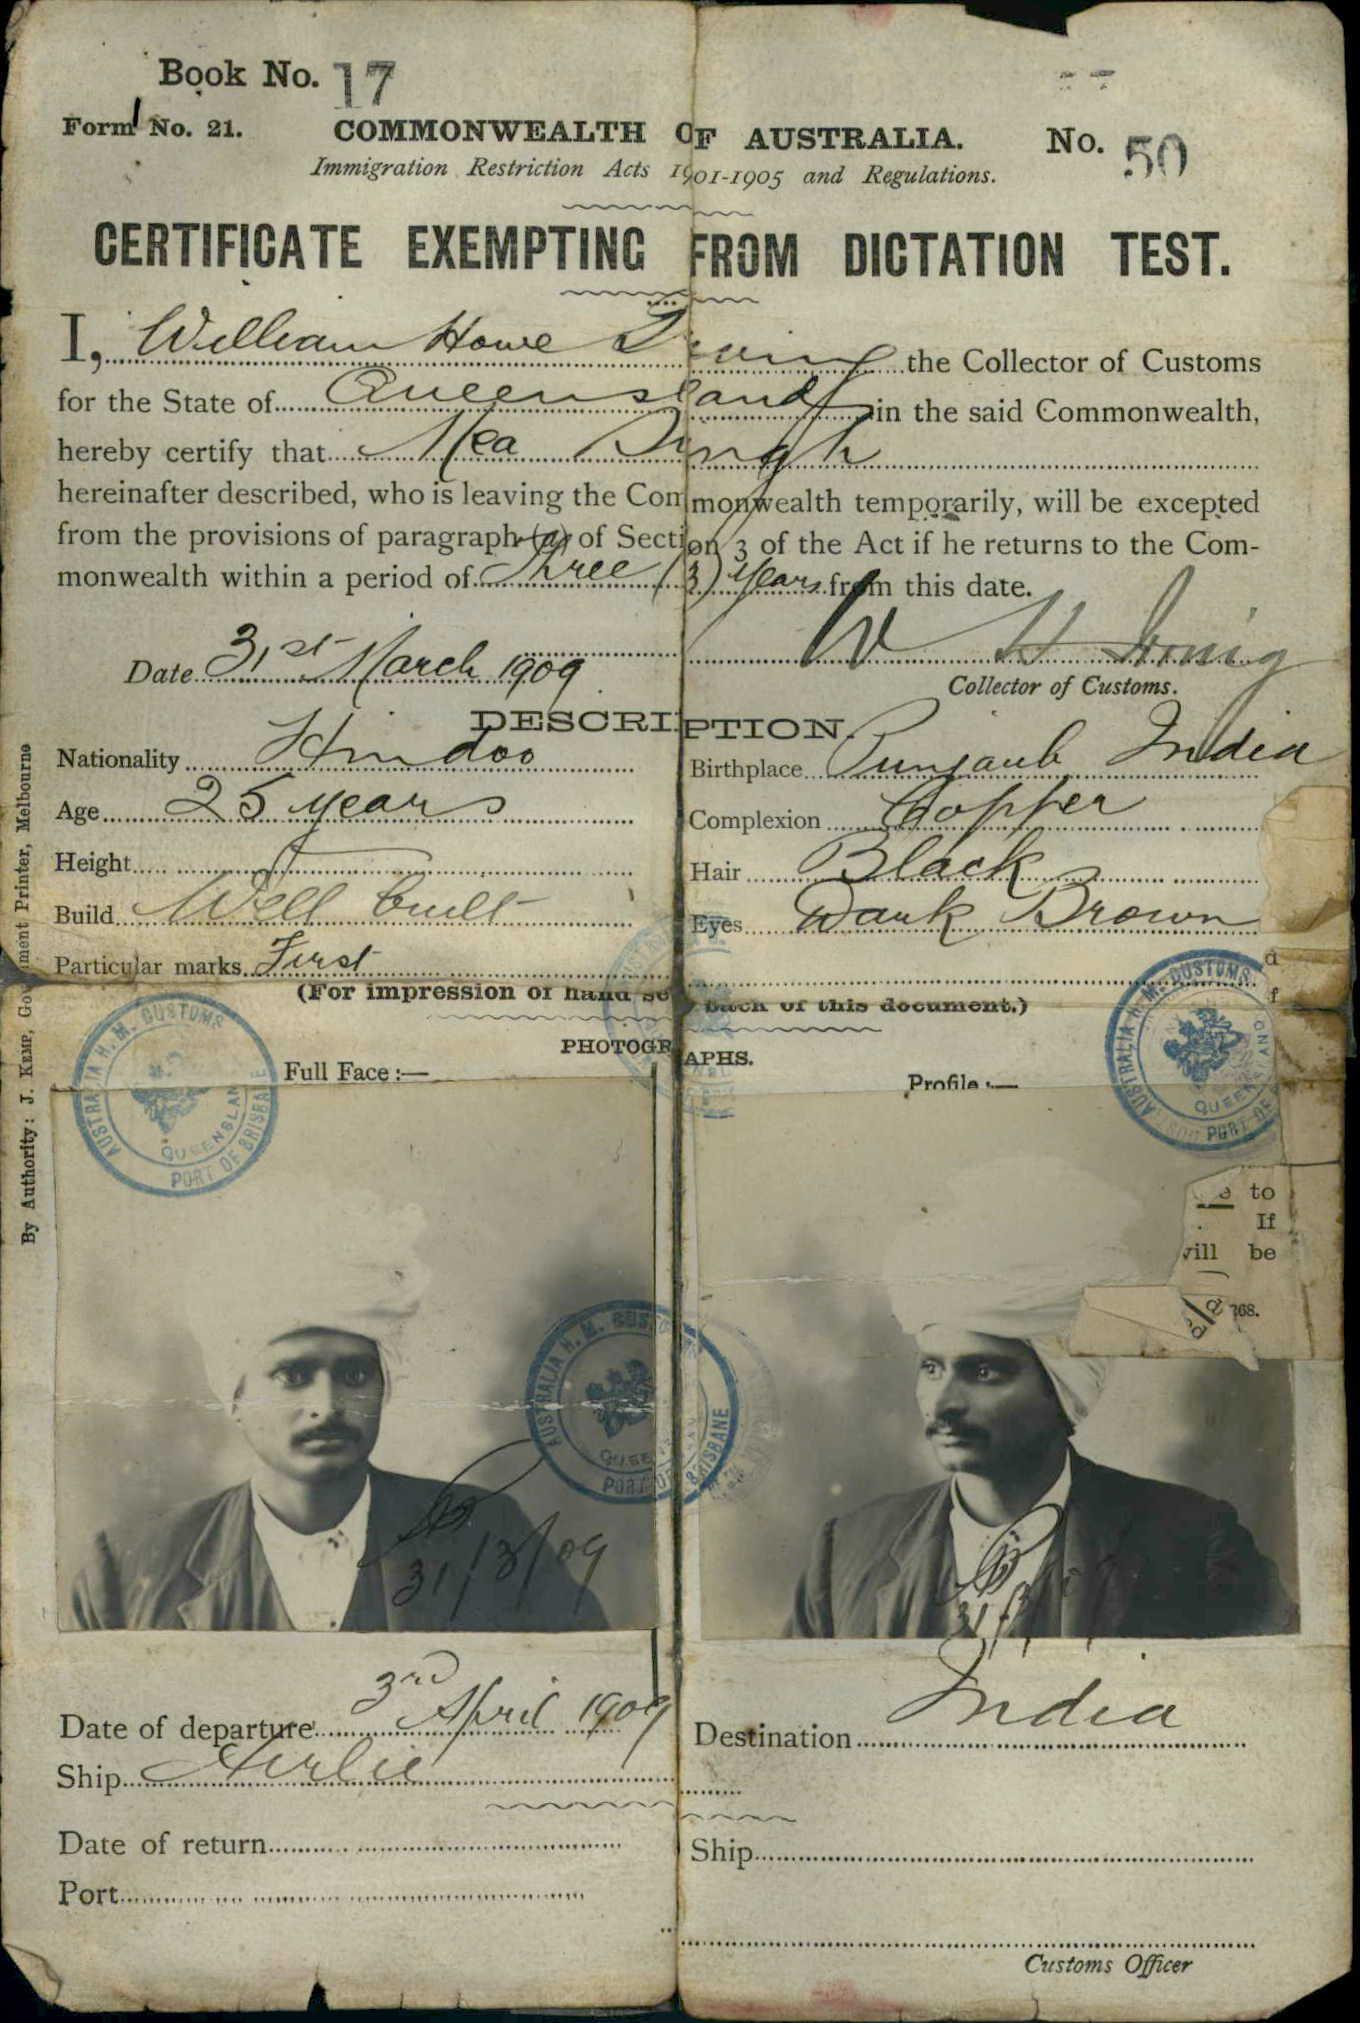 Book No. 17
Form No. 21.
COMMONWEALTH OF AUSTRALIA.
No. 50
Immigration Restriction Acts 1901-1905 and Regulations.
CERTIFICATE EXEMPTING FROM DICTATION TEST.
I, William Howe Irving the Collector of Customs
for the State of Queensland in the said Commonwealth,
hereby certify that Mea Singh
hereinafter described, who is leaving the Commonwealth temporarily, will be excepted
from the provisions of paragraph (a) of Section 3 of the Act if he returns to the Com-
monwealth within a period of Three (3) Years from this date.
Date 31st March 1909
W H Irving
Collector of Customs.
DESCRIPTION.
Nationality Hindoo
Birthplace Punjaub India
Age 25 years
Complexion Copper
Height
Hair Black
Build Well built
Eyes Dark Brown
Particular marks First
(For impression of hand see back of this document.)
PHOTOGRAPHS.
Full Face :—
Profile :—
AUSTRALIA H. M. CUSTOMS
QUEENSLAND
PORT OF BRISBANE
AUSTRALIA H. M. CUSTOMS
QUEENSLAND
PORT OF
d
f
to
If
will be
368.
AUSTRALIA H. M. CUSTOMS
PORT OF BRISBANE
31/3/09
Date of departure 3rd April 1909
Destination India
Ship Airlie
Date of return
Ship
Port
Customs Officer
By Authority: J. KEMP, Government Printer, Melbourne